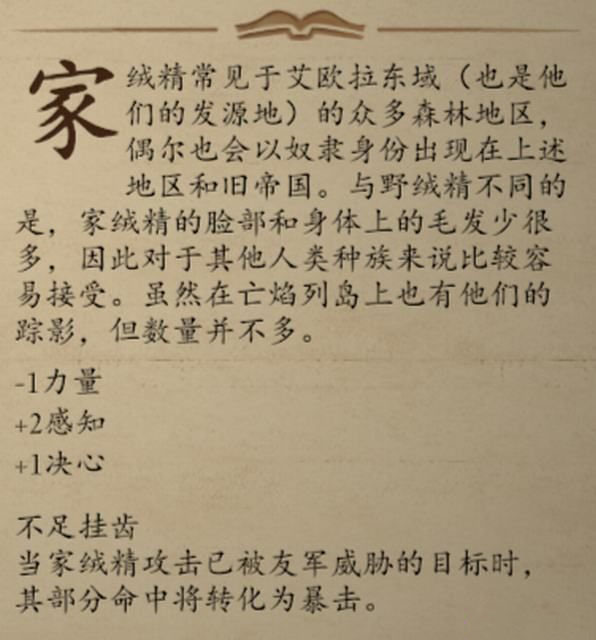 家绒精常见于艾欧拉东域（也是他
们的发源地）的众多森林地区，
偶尔也会以奴隶身份出现在上述
地区和旧帝国。与野绒精不同的
是，家绒精的脸部和身体上的毛发少很
多，因此对于其他人类种族来说比较容
易接受。虽然在亡焰列岛上也有他们的
踪影，但数量并不多。
-1力量
+2感知
+1决心
不足挂齿
当家绒精攻击已被友军威胁的目标时，
其部分命中将转化为暴击。